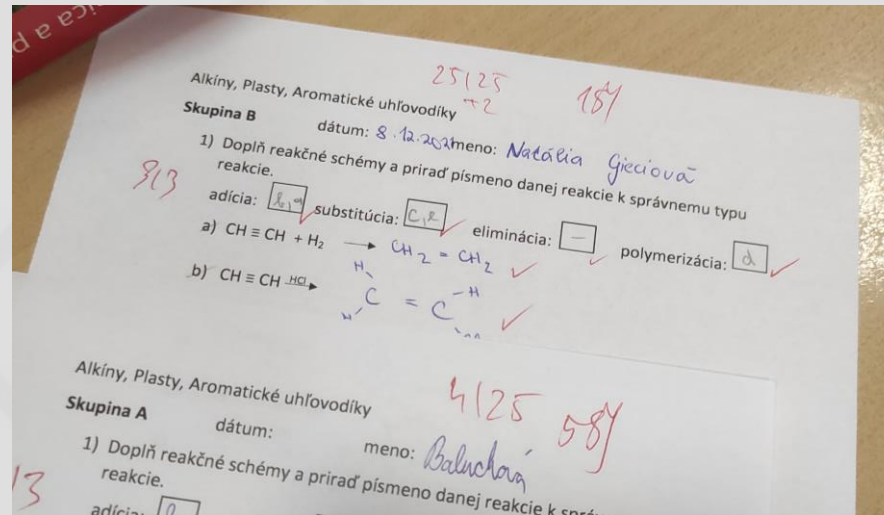 25/25
+2
Alkíny, Plasty, Aromatické uhľovodíky
Skupina B
dátum: 8.12.202 meno: Natália Gieciová
1) Doplň reakčné schémy a priraď písmeno danej reakcie k správnemu typu
reakcie.
adícia: b,a substitúcia: c,e eliminácia: – polymerizácia: d
a) CH ≡ CH + H₂ → CH₂ = CH₂
b) CH ≡ CH HCl →
H H
C = C
H
Alkíny, Plasty, Aromatické uhľovodíky
4/25
Skupina A
dátum: meno: Baluchová
1) Doplň reakčné schémy a priraď písmeno danej reakcie k
reakcie.
adícia: